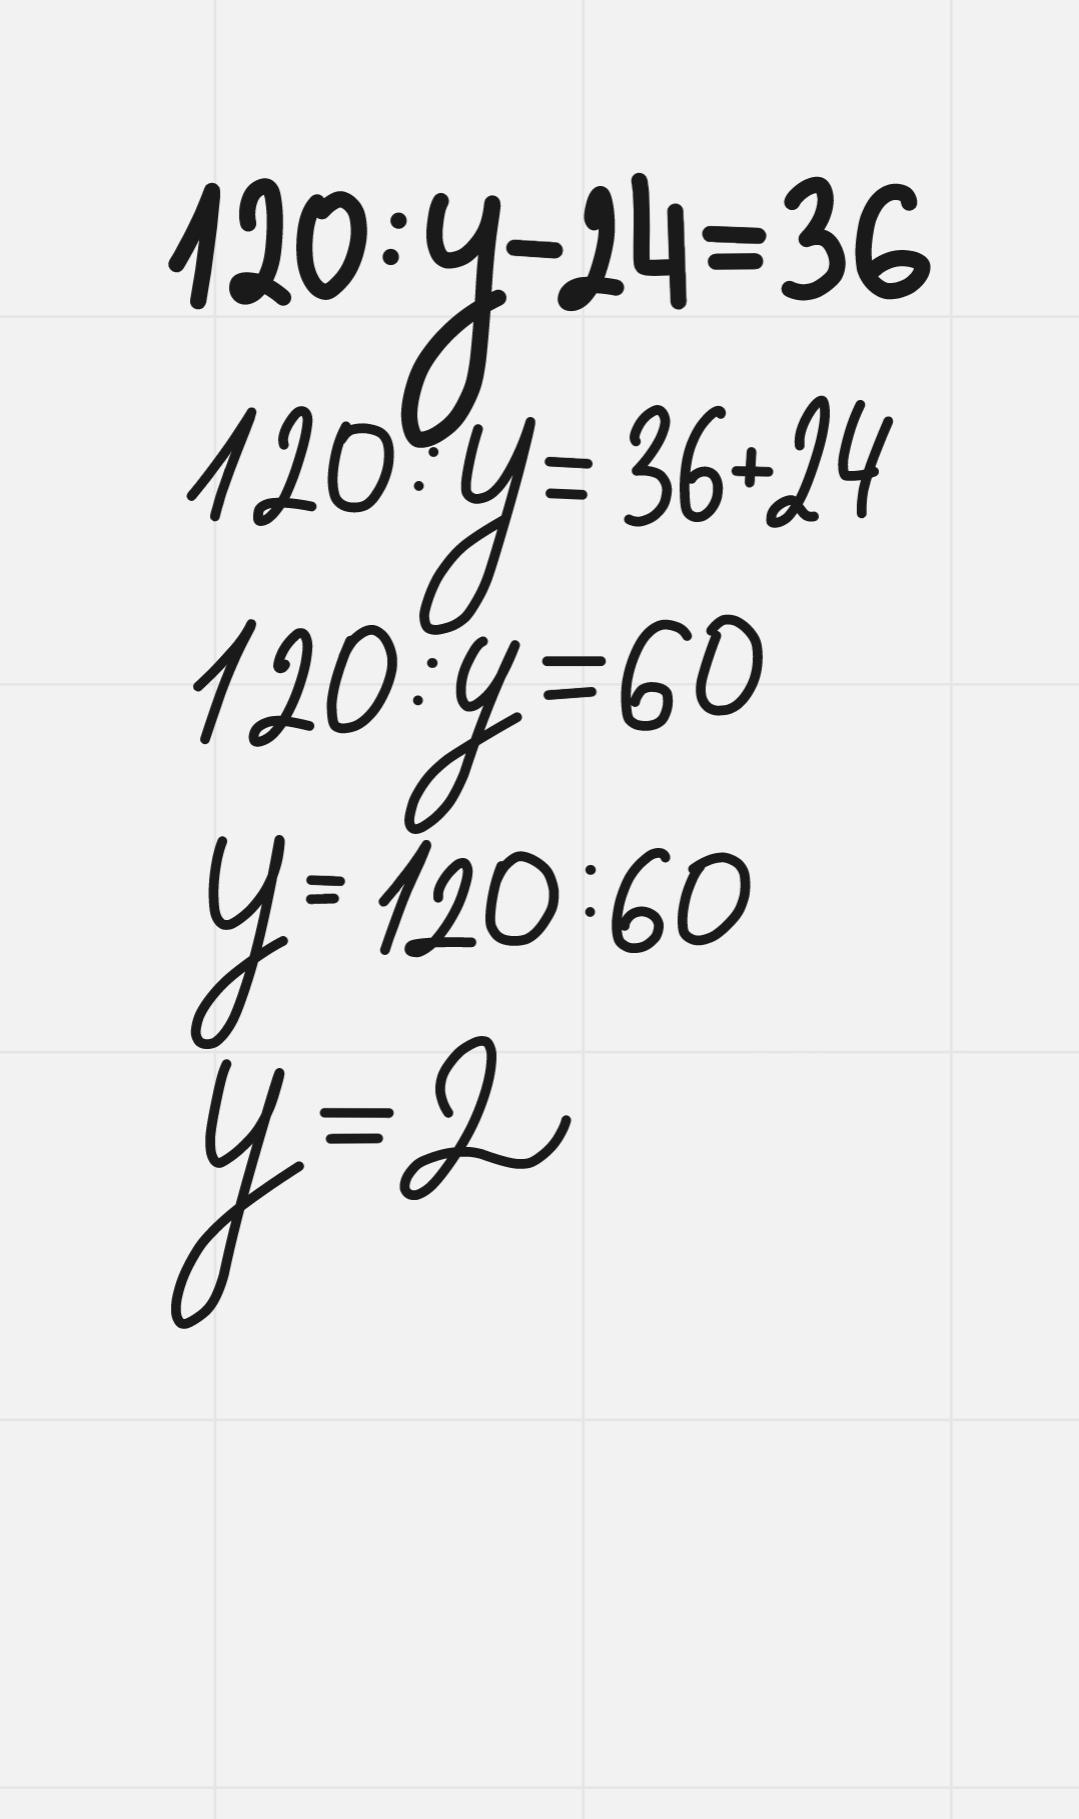 120:y-24=36
120:y=36+24
120:y=60
y=120:60
y=2